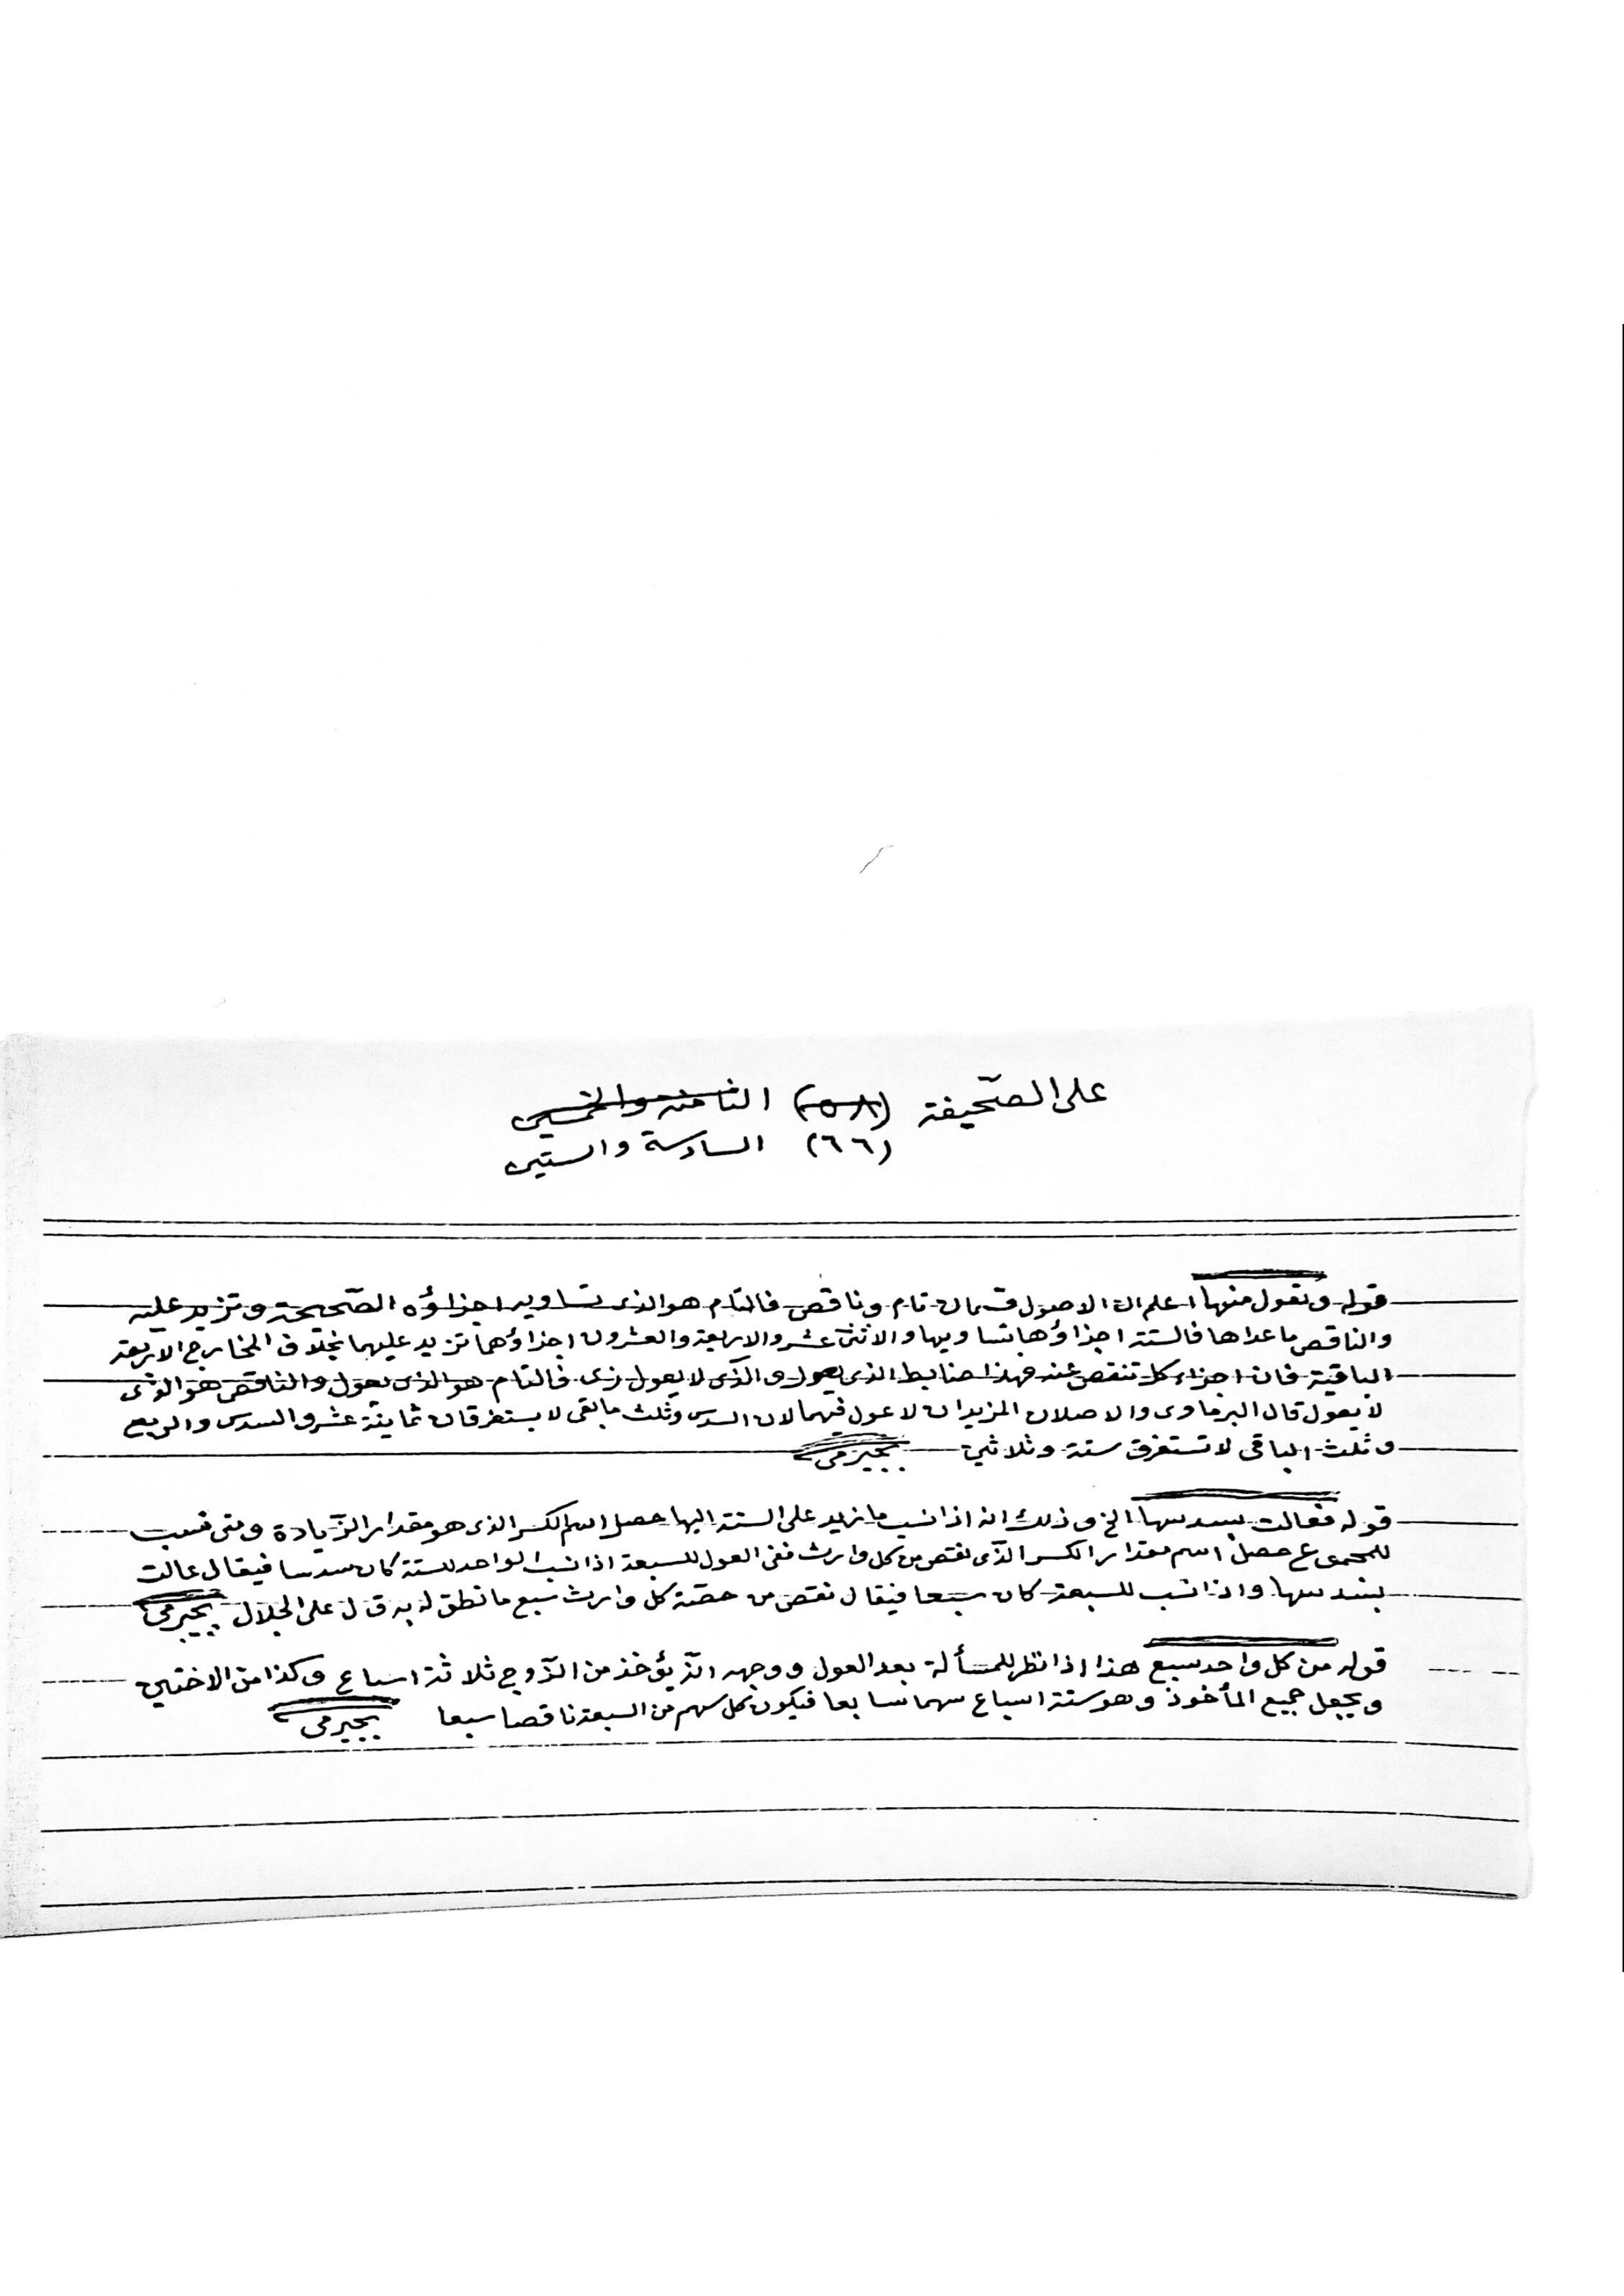 على الصّحيفة (٥٨) الثامنة والخمسين
(٦٦) السادسة والستين
قوله وتعول منها اعلم ان الاصول قسمان تام وناقص فالتام هو الذى تساويه اجزاؤه الصّحيحة وتزيد عليه
والناقص ما عداها فالستة اجزاؤها تساويها والاثنى عشر والاربعة والعشرون اجزاؤهما تزيد عليهما بخلاف المخارج الاربعة
الباقية فان اجزاء كل تنقص عنه فهذا ضابط الذى يعول والذى لا يعول زى فالتام هو الذى يعول والناقص هو الذى
لا يعول قال البرماوى والاصلان المزيدان لا عول فيهما لان السدس وثلث ما بقى لا يستغرقان ثمانية عشر والسدس والربع
وثلث الباقى لا تستغرق ستة وثلاثين بجيرمى
قوله فعالت بسدسها الخ وذلك انه اذا نسب ما زيد على الستة اليها حصل اسم الكسر الذى هو مقدار الزّيادة ومتى نسب
للمجموع حصل اسم مقدار الكسر الذى نقص من كل وارث ففى العول للسبعة اذا نسب الواحد للستة كان سدسا فيقال عالت
بسدسها واذا نسب للسبعة كان سبعا فيقال نقص من حصّة كل وارث سبع ما نطق له به ق ل على الجلال بجيرمى
قوله من كل واحد سبع هذا اذا نظر للمسألة بعد العول ووجهه انّه يؤخذ من الزّوج ثلاثة اسباع وكذا من الاختين
ويجعل جميع المأخوذ وهو ستة اسباع سهما سابعا فيكون كل سهم من السبعة ناقصا سبعا بجيرمى